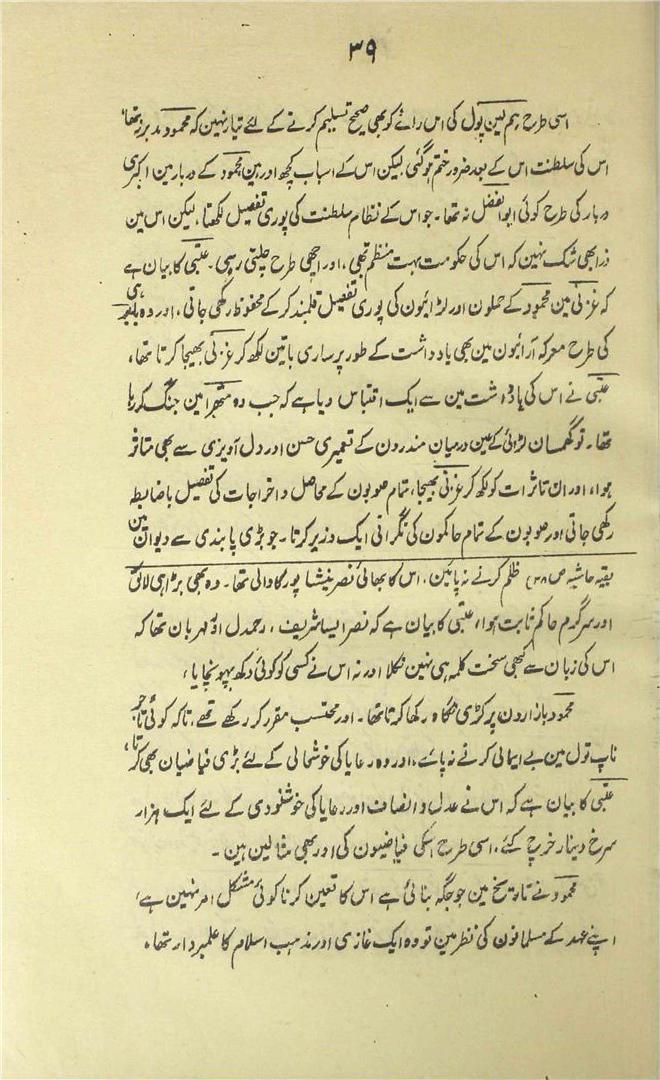 ۳۹
اسی طرح ہم لین پول کی اس رائے کو بھی صحیح تسلیم کرنے کے لئے تیار نہین کہ محمود مدبر نہ تھا،
اس کی سلطنت اس کے بعد ضرور ختم ہوگئی لیکن اس کے اسباب کچھ اور ہین محمود کے دربار مین اکبری
دربار کی طرح کوئی ابو الفضل نہ تھا۔ جو اس کے نظام سلطنت کی پوری تفصیل لکھتا، لیکن اس مین
ذرا بھی شک نہین کہ اس کی حکومت بہت منظم تھی، اور اچھی طرح چلتی رہی۔ عتبی کا بیان ہے
کہ غزنی مین محمود کے حملون اور لڑائیون کی پوری تفصیل قلمبند کر کے محفوظ رکھی جاتی، اور وہ
کی طرح معرکہ آرائیون مین بھی یاد داشت کے طور پر ساری باتین لکھ کر غزنی بھیجا کرتا تھا،
عتبی نے اس کی یاد داشت مین سے ایک اقتباس دیا ہے کہ جب وہ متھرا مین جنگ کر رہا
تھا۔ تو گھمسان لڑائی کے عین درمیان مندرون کے تعمیری حسن اور دل آویزی سے بھی متاثر
ہوا، اور ان تاثرات کو لکھ کر غزنی بھیجا، تمام صوبون کے محاصل و اخراجات کی تفصیل با ضابطہ
رکھی جاتی اور صوبون کے تمام حاکمون کی نگرانی ایک وزیر کرتا۔ جو بڑی پابندی سے دیوان مین
بقیہ حاشیہ ص ۳۸) ظلم کرنے نہ پائین، اس کا بھائی نصر نیشا پور کا والی تھا۔ وہ بھی بڑا ہی لائق
اور سرگرم حاکم ثابت ہوا، عتبی کا بیان ہے کہ نصر ایسا شریف، رحمدل اور مہربان تھا کہ
اس کی زبان سے کبھی سخت کلمہ ہی نہین نکلا اور نہ اس نے کسی کو کوئی دکھ پہونچایا،
محمود بازارون پر کڑی نگاہ رکھا کرتا تھا۔ اور محتسب مقرر کر رکھے تھے، تاکہ کوئی تاجر
ناپ تول مین بے ایمانی کرنے نہ پائے، اور وہ رعایا کی خوشحالی کے لئے بڑی فیاضیان بھی کرتا،
عتبی کا بیان ہے کہ اس نے عدل و انصاف اور رعایا کی خوشنودی کے لئے ایک ہزار
سرخ دینار خرچ کئے، اسی طرح اسکی فیاضیون کی اور بھی مثالین ہین۔
محمود نے تاریخ مین جو جگہ بنائی ہے اس کا تعین کرنا کوئی مشکل امر نہین ہے،
اپنے عہد کے مسلمانون کی نظر مین تو وہ ایک غازی اور مذہب اسلام کا علمبردار تھا،